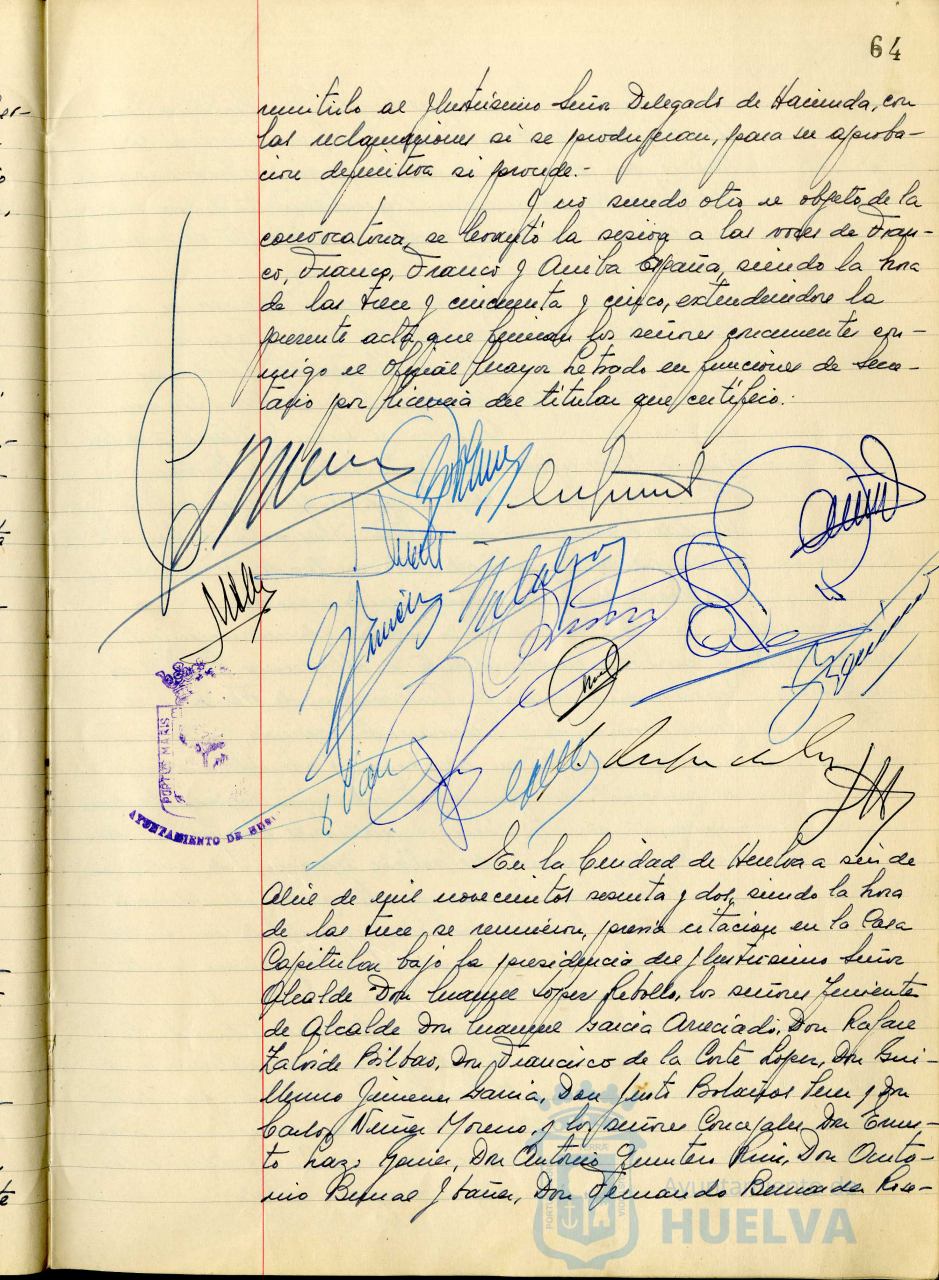 64
remitirlo al Ilustrísimo Señor Delegado de Hacienda, con
las reclamaciones si se produjeran, para su aproba-
ción definitiva si procede.-
Y no siendo otro el objeto de la
convocatoria, se levantó la sesión a las voces de Fran-
co, Franco, Franco y Arriba España, siendo la hora
de las trece y cincuenta y cinco, extendiéndose la
presente acta que firman los señores concurrentes con-
migo el Oficial Mayor Letrado en funciones de Secre-
tario por licencia del titular que certifico.-
PORTUS MARIS
AYUNTAMIENTO DE
En la Ciudad de Huelva a seis de
Abril de mil novecientos sesenta y dos, siendo la hora
de las trece, se reunieron, previa citación en la Casa
Capitular bajo la presidencia del Ilustrísimo Señor
Alcalde Don Manuel López Rebollo, los señores Tenientes
de Alcalde Don Manuel García Areciado, Don Rafael
Zalvide Bilbao, Don Francisco de la Corte López, Don Gui-
llermo Jimenez García, Don Justo Bolaños Pern y Don
Carlos Núñez Moreno, y los señores Concejales Don Ernes-
to Lazo Don Antonio Quintero Ruiz, Don Anto-
nio Bernal Ibañez, Don Fernando Bermudez
Ayuntamiento de
HUELVA